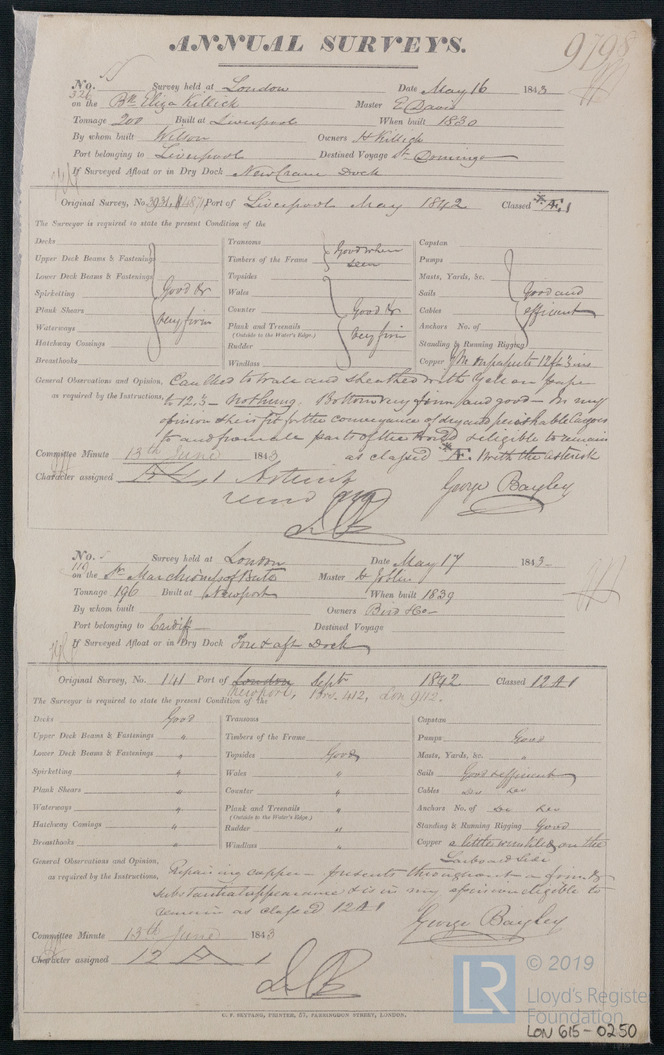 ANNUAL SURVEYS.
9798
No. 326 Survey held at London Date May 16 1843
on the Bk Eliza Killick Master E Davis
Tonnage 200 Built at Liverpool When built 1830
By whom built Wilson Owners H Killick
Port belonging to Liverpool Destined Voyage St Domingo
If Surveyed Afloat or in Dry Dock New Crane Dock
Original Survey, No. Port of Liverpool May 1842 Classed *Æ 1
The Surveyor is required to state the present Condition of the
Decks
Upper Deck Beams & Fastenings
Lower Deck Beams & Fastenings
Spirketting Good &
Plank Shears very firm
Waterways
Hatchway Coamings
Breasthooks
Transoms Good when
Timbers of the Frame seen
Topsides
Wales
Counter Good &
Plank and Treenails very firm
(Outside to the Water's Edge.)
Rudder
Windlass
Capstan
Pumps
Masts, Yards, &c.
Sails Good and
Cables efficient
Anchors No. of
Standing & Running Rigging
Copper 12 ft 3 ins
General Observations and Opinion, Caulked to Wale and sheathed with Yellow on paper
as required by the Instructions, to 12.3 - nothing. Bottom very firm and good - in my
opinion she is fit for the conveyance of dry and perishable Cargoes
to and from all parts of the World & eligible to remain
Committee Minute 13th June 1843 as classed *Æ 1 with the asterisk
Character assigned Æ 1
George Bayley
No. 119 Survey held at London Date May 17 1843
on the Sr Marchioness of Bute Master H Joblin
Tonnage 196 Built at Newport When built 1839
By whom built Owners Bird & Co
Port belonging to Cardiff Destined Voyage
If Surveyed Afloat or in Dry Dock Fore & aft Dock
Original Survey, No. 141 Port of London Sept 1842 Classed 12 A 1
Newport, Brs. 412, Lon 942.
The Surveyor is required to state the present Condition of the
Decks Good
Upper Deck Beams & Fastenings "
Lower Deck Beams & Fastenings "
Spirketting "
Plank Shears "
Waterways "
Hatchway Coamings "
Breasthooks "
Transoms
Timbers of the Frame
Topsides Good
Wales "
Counter "
Plank and Treenails "
(Outside to the Water's Edge.)
Rudder "
Windlass "
Capstan
Pumps Good
Masts, Yards, &c. "
Sails Good & efficient
Cables Do Do
Anchors No. of Do Do
Standing & Running Rigging Good
Copper a little wrinkled on the
Larboard Side
General Observations and Opinion, Repairing copper - presents throughout a firm &
as required by the Instructions, substantial appearance & is in my opinion eligible to
remain as classed 12 A 1
George Bayley
Committee Minute 13th June 1843
Character assigned 12 A 1
C. F. SEYFANG, PRINTER, 57, FARRINGDON STREET, LONDON.
LR
© 2019
Lloyd's Register
Foundation
LON 615-0250